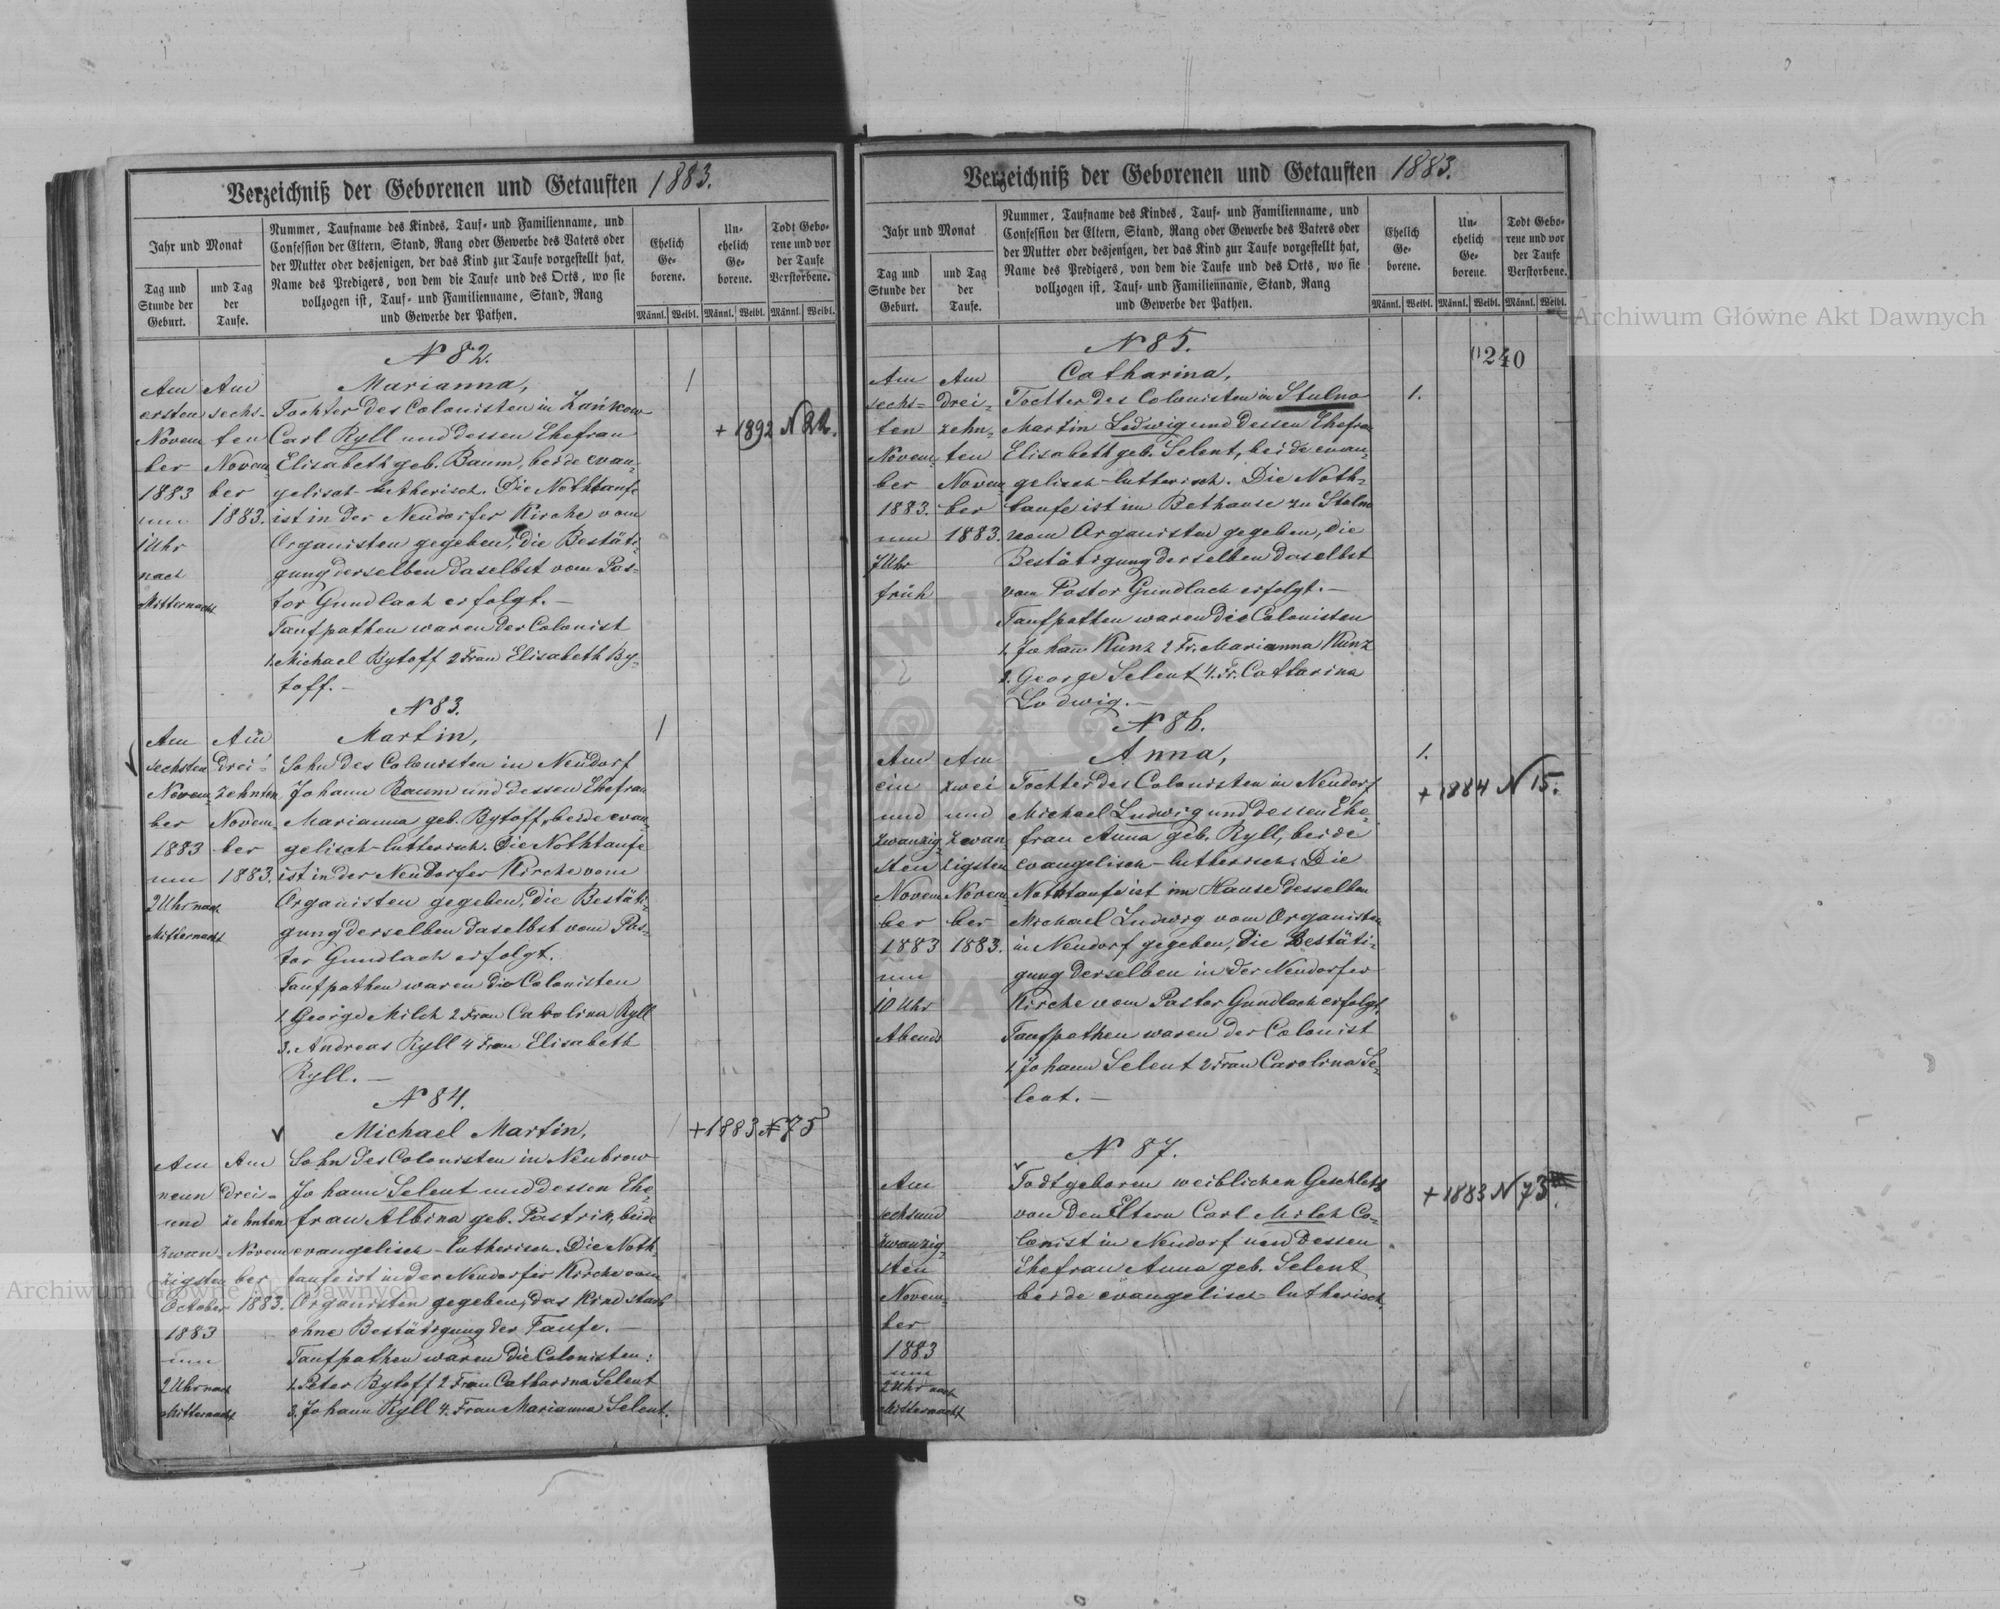 Verzeichniß der Geborenen und Getauften 1883.
Jahr und Monat
Tag und Stunde der Geburt.
und Tag der Taufe.
Nummer, Taufname des Kindes, Tauf- und Familienname, und
Confession der Eltern, Stand, Rang oder Gewerbe des Vaters oder
der Mutter oder desjenigen, der das Kind zur Taufe vorgestellt hat,
Name des Predigers, von dem die Taufe und des Orts, wo sie
vollzogen ist, Tauf- und Familienname, Stand, Rang
und Gewerbe der Pathen.
Ehelich Geborene.
Unehelich Geborene.
Todt Geborene und vor der Taufe Verstorbene.
Männl. Weibl. Männl. Weibl. Männl. Weibl.
N 82.
Am ersten Novem ber 1883 um 1 Uhr nach Mitternacht
Am sechs- ten Novem- ber 1883.
Marianna, 1
Tochter des Colonisten in Zańkow
Carl Ryll und dessen Ehefrau
+ 1892 N 22.
Elisabeth geb. Baum, beide evan-
gelisch-lutherisch. Die Nothtaufe
ist in der Neudorfer Kirche vom
Organisten gegeben, die Bestäti-
gung derselben daselbst vom Pas-
tor Gundlach erfolgt. —
Taufpathen waren der Colonist
1. Michael Bytoff 2 Frau Elisabeth By-
toff. —
N 83.
Am sechsten Novem- ber 1883 um 2 Uhr nach Mitternacht
Am drei- zehnten Novem- ber 1883.
Martin, 1
Sohn des Colonisten in Neudorf
Johann Baum und dessen Ehefrau
Marianna geb. Bytoff, beide evan-
gelisch-lutherisch. Die Nothtaufe
ist in der Neudorfer Kirche vom
Organisten gegeben, die Bestäti-
gung derselben daselbst vom Pas-
tor Gundlach erfolgt.
Taufpathen waren die Colonisten
1. George Milch 2 Frau Carolina Ryll
3. Andreas Ryll 4 Frau Elisabeth
Ryll. —
N 84.
Am neun und zwan- zigsten October 1883 um 2 Uhr nach Mitternacht
Am drei- zehnten Novem ber 1883.
Michael Martin,
+ 1883 N 75
Sohn des Colonisten in Neubrow
Johann Selent und dessen Ehe-
frau Albina geb. Pastrik, beide
evangelisch-lutherisch. Die Noth
taufe ist in der Neudorfer Kirche vom
Organisten gegeben, das Kind starb
ohne Bestätigung der Taufe. —
Taufpathen waren die Colonisten:
1. Peter Bytoff 2 Frau Catharina Selent
3. Johann Ryll 4. Frau Marianna Selent.
Verzeichniß der Geborenen und Getauften 1883.
Jahr und Monat
Tag und Stunde der Geburt.
und Tag der Taufe.
Nummer, Taufname des Kindes, Tauf- und Familienname, und
Confession der Eltern, Stand, Rang oder Gewerbe des Vaters oder
der Mutter oder desjenigen, der das Kind zur Taufe vorgestellt hat,
Name des Predigers, von dem die Taufe und des Orts, wo sie
vollzogen ist, Tauf- und Familienname, Stand, Rang
und Gewerbe der Pathen.
Ehelich Geborene.
Unehelich Geborene.
Todt Geborene und vor der Taufe Verstorbene.
Männl. Weibl. Männl. Weibl. Männl. Weibl.
240
N 85.
Am sechs- ten Novem- ber 1883. um 7 Uhr früh
Am drei- zehn- ten Novem- ber 1883.
Catharina,
Tochter des Colonisten in Stulno 1.
Martin Ludwig und dessen Ehefrau
Elisabeth geb. Selent, beide evan-
gelisch-lutherisch. Die Noth-
taufe ist im Bethause zu Stulno
vom Organisten gegeben, die
Bestätigung derselben daselbst
vom Pastor Gundlach erfolgt. —
Taufpathen waren die Colonisten
1. Johann Kunz 2 Fr. Marianna Kunz
3. George Selent 4. Fr. Catharina
Ludwig. —
N 86.
Am ein und zwanzig- sten Novem ber 1883 um 10 Uhr Abends
Am zwei und zwan- zigsten Novem- ber 1883.
Anna, 1.
Tochter des Colonisten in Neudorf
+ 1884 N 15.
Michael Ludwig und dessen Ehe-
frau Anna geb. Ryll, beide
evangelisch-lutherisch. Die
Nothtaufe ist im Hause desselben
Michael Ludwig vom Organisten
in Neudorf gegeben, die Bestäti-
gung derselben in der Neudorfer
Kirche vom Pastor Gundlach erfolgt.
Taufpathen waren der Colonist
1. Johann Selent 2 Frau Carolina Se-
lent. —
N 87.
Am sechsund zwanzig- sten Novem- ber 1883 um 2 Uhr nach Mitternacht
Todtgeboren weiblichen Geschlechts
+ 1883 N 73
von den Eltern Carl Milch Co-
lonist in Neudorf und dessen
Ehefrau Anna geb. Selent
beide evangelisch-lutherisch.
Archiwum Główne Akt Dawnych
Archiwum Główne Akt Dawnych